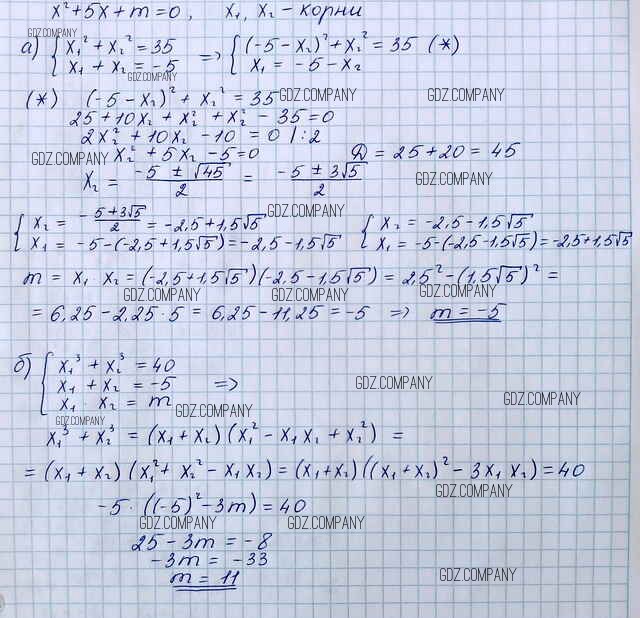 x² + 5x + m = 0, x₁, x₂ - корни
GDZ.COMPANY
а) { x₁² + x₂² = 35 => { (-5 - x₂)² + x₂² = 35 (*)
x₁ + x₂ = -5 x₁ = -5 - x₂
GDZ.COMPANY
(*) (-5 - x₂)² + x₂² = 35 GDZ.COMPANY GDZ.COMPANY
25 + 10x₂ + x₂² + x₂² - 35 = 0
2x₂² + 10x₂ - 10 = 0 | :2
GDZ.COMPANY x₂² + 5x₂ - 5 = 0 D = 25 + 20 = 45
x₂ = (-5 ± √45)/2 = (-5 ± 3√5)/2 GDZ.COMPANY
GDZ.COMPANY
{ x₂ = -(5+3√5)/2 = -2,5 + 1,5√5 { x₂ = -2,5 - 1,5√5
x₁ = -5 - (-2,5 + 1,5√5) = -2,5 - 1,5√5 x₁ = -5 - (-2,5 - 1,5√5) = -2,5 + 1,5√5
m = x₁ x₂ = (-2,5 + 1,5√5)(-2,5 - 1,5√5) = 2,5² - (1,5√5)² =
GDZ.COMPANY GDZ.COMPANY GDZ.COMPANY
= 6,25 - 2,25 · 5 = 6,25 - 11,25 = -5 => m = -5
б) { x₁³ + x₂³ = 40
x₁ + x₂ = -5 => GDZ.COMPANY
x₁ · x₂ = m GDZ.COMPANY
GDZ.COMPANY GDZ.COMPANY
x₁³ + x₂³ = (x₁ + x₂)(x₁² - x₁x₂ + x₂²) =
= (x₁ + x₂)(x₁² + x₂² - x₁x₂) = (x₁ + x₂)((x₁ + x₂)² - 3x₁x₂) = 40
GDZ.COMPANY
-5 · ((-5)² - 3m) = 40
GDZ.COMPANY GDZ.COMPANY
25 - 3m = -8
-3m = -33
m = 11 GDZ.COMPANY